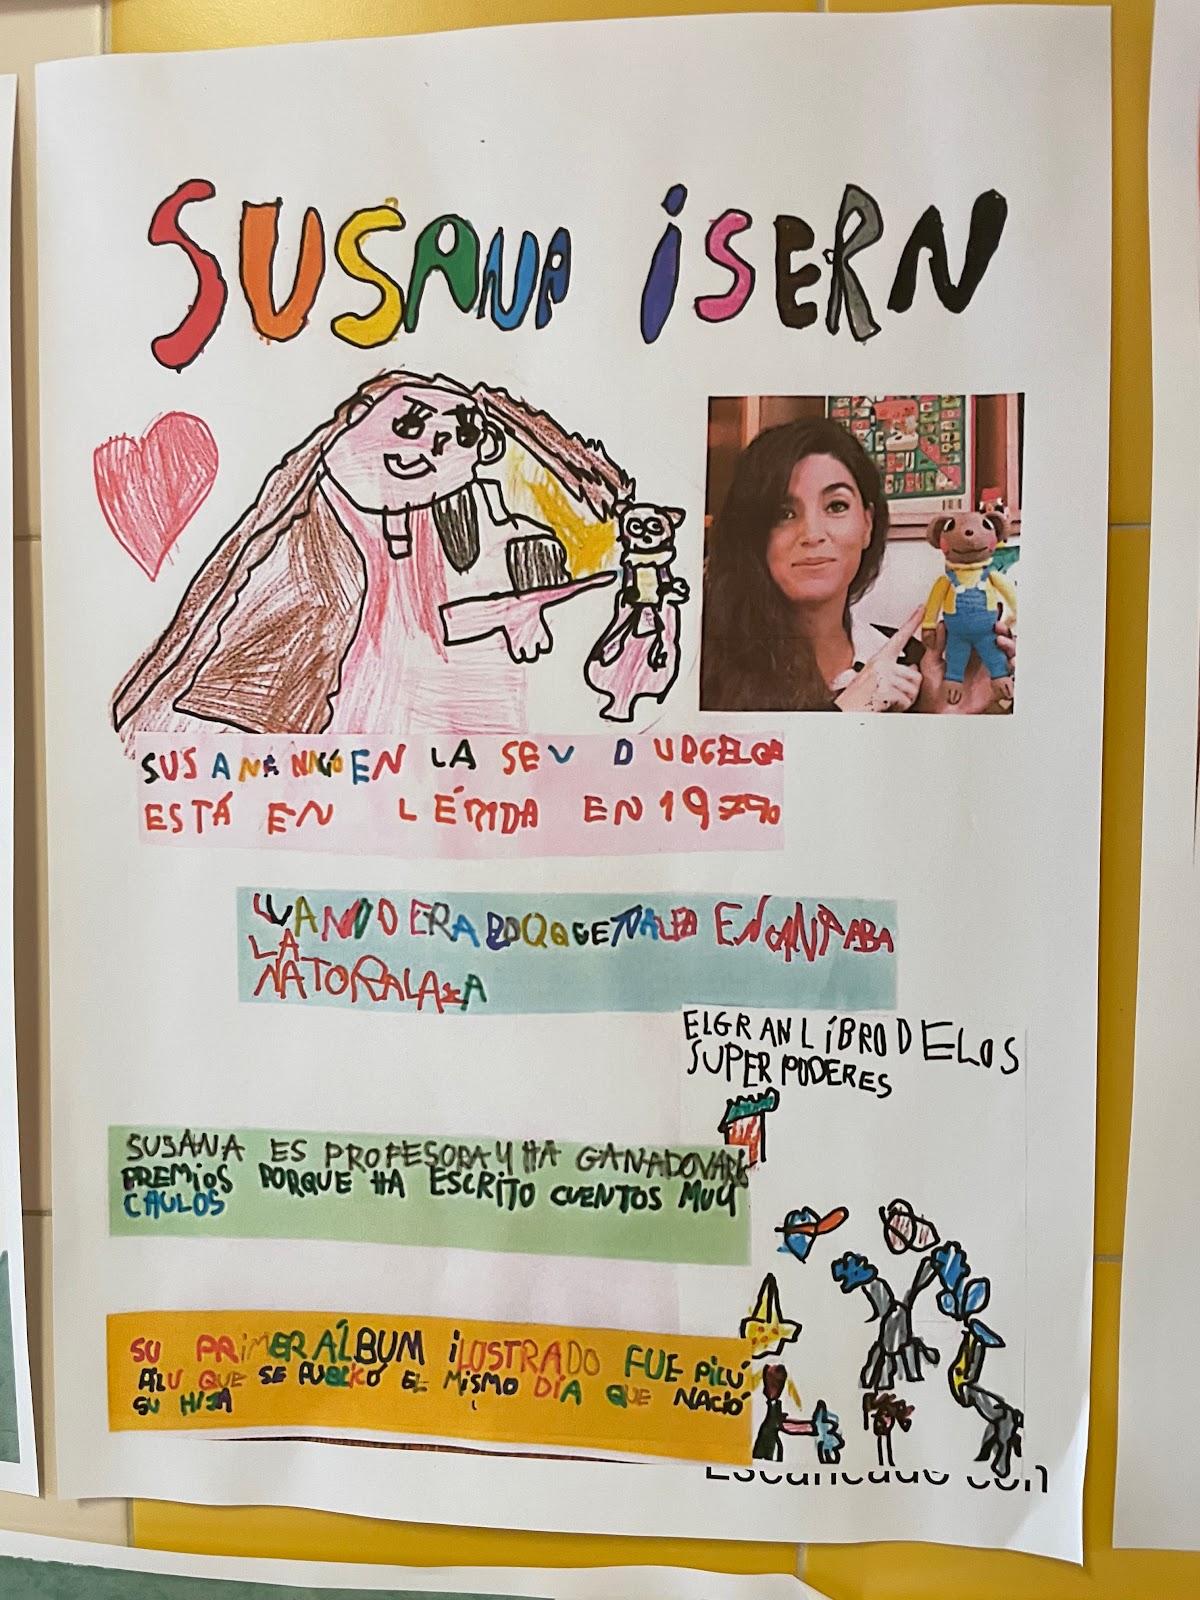 SUSANA ISERN
SUSANA NACIÓ EN LA SEU D URGELQE
ESTÁ EN LÉRIDA EN 1978
CUANDO ERA POQQUETALE ENCANTABA
LA
NATORALAZA
EL GRAN LIBRO DE LOS
SUPER PODERES
SUSANA ES PROFESORA Y HA GANADO VARIS
PREMIOS PORQUE HA ESCRITO CUENTOS MUY
CHULOS
SU PRIMER ÁLBUM ILOSTRADO FUE PILÚ
PILU QUE SE PUBLICÓ EL MISMO DÍA QUE NACIÓ
SU HIJA
Escaneado con